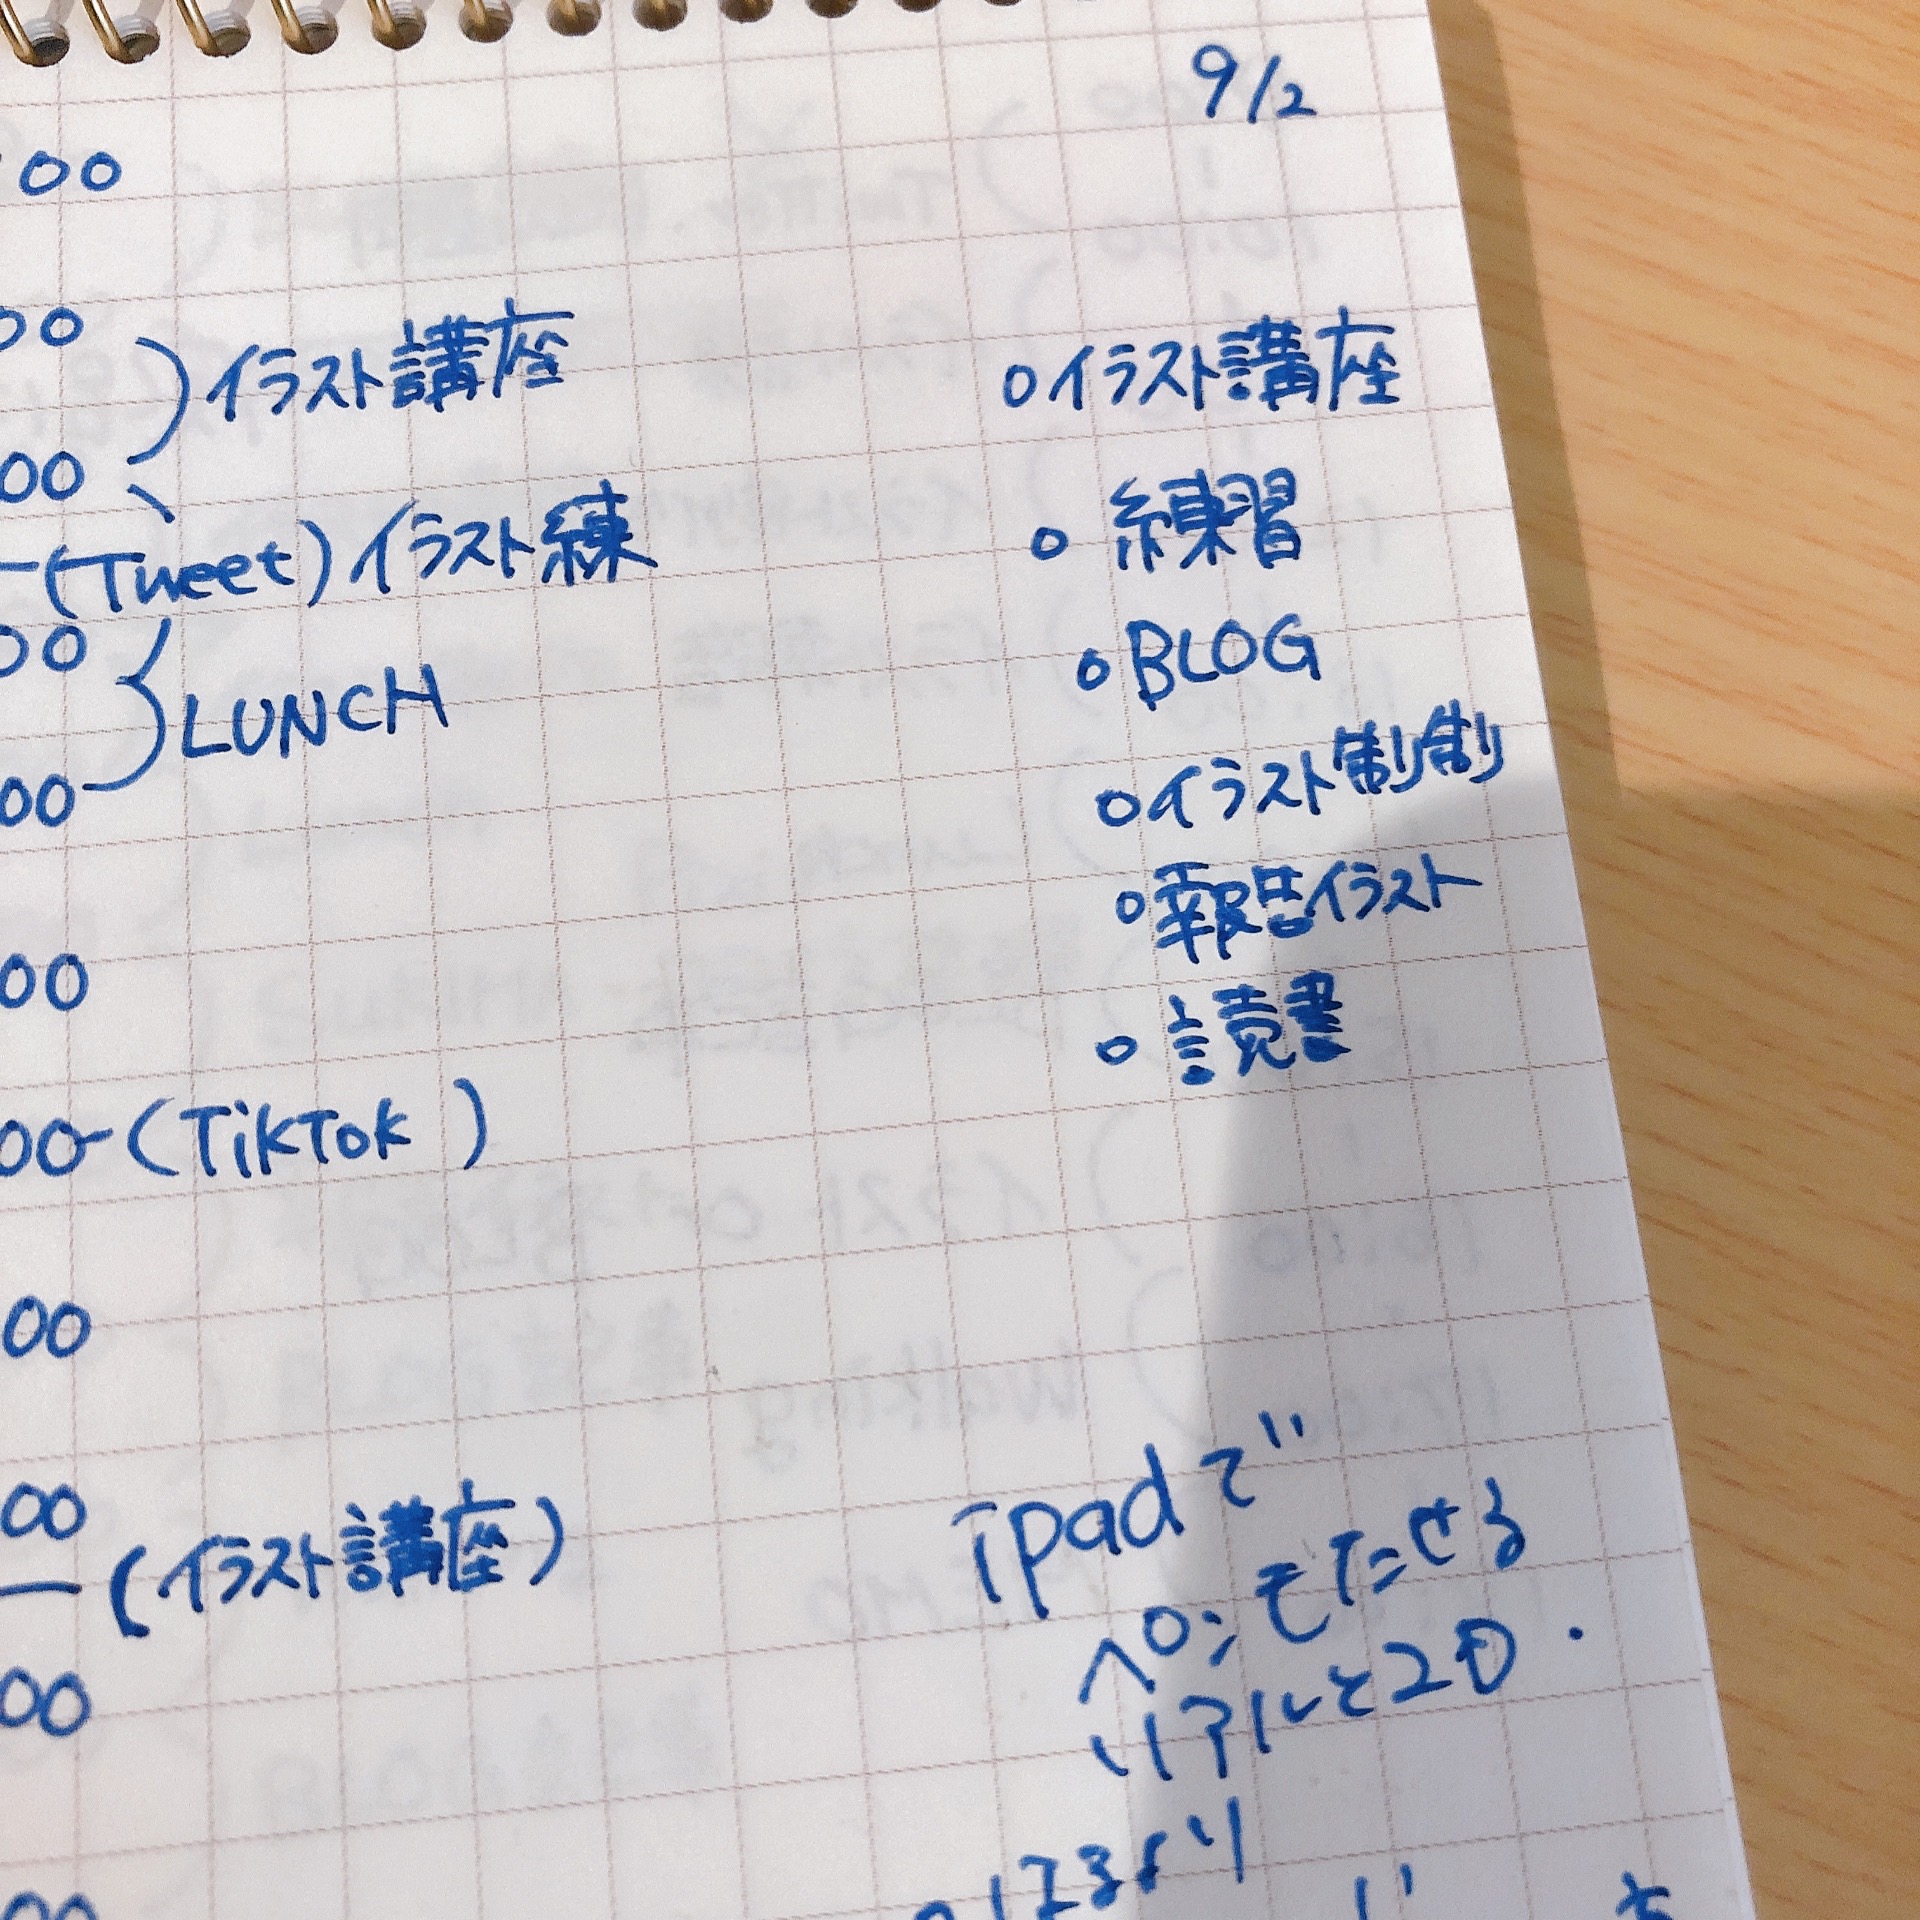 9/2
00
00
イラスト講座
00
(Tweet)イラスト練
00
LUNCH
00
00
00-(TikTok )
00
00
(イラスト講座)
00
00
○イラスト講座
○ 練習
○BLOG
○イラスト制制
○報告イラスト
○ 読書
ipadで
ペロ:モたせる
リアルと2D.